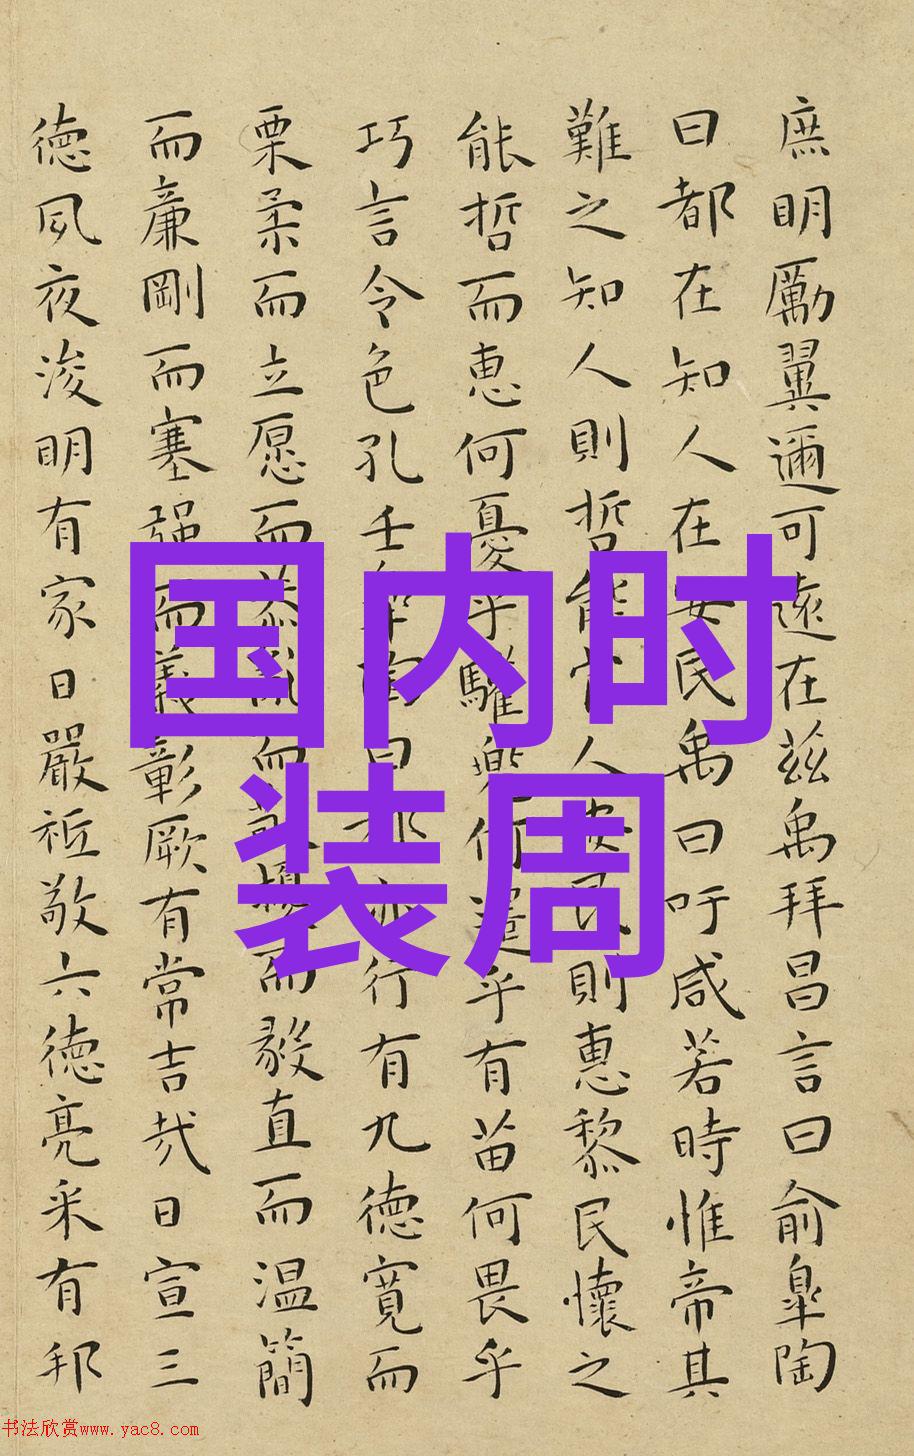 庶明勵翼邇可遠在茲禹拜昌言曰俞臯陶
曰都在知人在安民禹曰吁咸若時惟帝其
難之知人則哲能官人安民則惠黎民懷之
能哲而惠何憂乎驩兜何遷乎有苗何畏乎
巧言令色孔壬陶曰亦行有九德寬而
栗柔而立愿而恭而擾而毅直而温簡
而廉剛而塞强而義彰厥有常吉哉日宣三
德夙夜浚明有家日嚴祗敬六德亮采有邦
国内时
装周
书法欣赏www.yac8.com